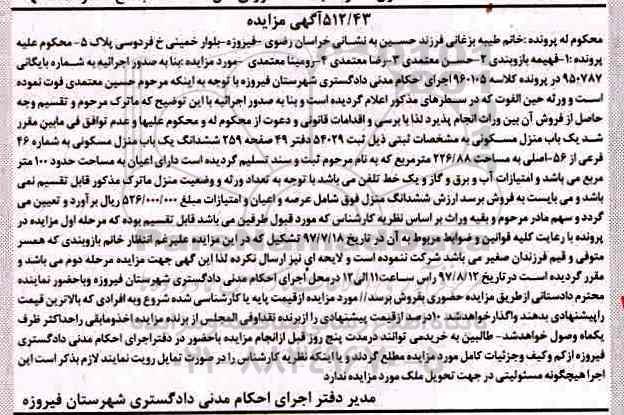 ۵۱۲/۴۳آگهی مزایده
محکوم له پرونده :خانم طیبه بزغانی فرزند حسین به نشانی خراسان رضوی -فیروزه-بلوار خمینی خ فردوسی پلاک ۵- محکوم علیه
پرونده:۱-فهیمه بازوبندی ۲-حسن معتمدی ۳-رضا معتمدی ۴-رومینا معتمدی -مورد مزایده :بنا به صدور اجرائیه به شماره بایگانی
۹۵۰۷۸۷ در پرونده کلاسه ۹۶۰۱۰۵ اجرای احکام مدنی دادگستری شهرستان فیروزه با توجه به اینکه مرحوم حسین معتمدی فوت نموده
است و ورثه حین الفوت که در سطرهای مذکور اعلام گردیده است و بنا به صدور اجرائیه با این توضیح که ماترک مرحوم و تقسیم وجه
حاصل از فروش آن بین وراث انجام پذیرد لذا با برسی و اقدامات قانونی و دعوت از محکوم له و محکوم علیها و عدم توافق فی مابین مقرر
شد یک باب منزل مسکونی به مشخصات ثبتی ذیل ثبت ۵۴۰۲۹ دفتر ۴۹ صفحه ۲۵۹ ششدانگ یک باب منزل مسکونی به شماره ۴۶
فرعی از ۵۶-اصلی به مساحت ۲۲۶/۸۸ مترمربع که به نام مرحوم ثبت و سند تسلیم گردیده است دارای اعیان به مساحت حدود ۱۰۰ متر
مربع می باشد و امتیازات آب و برق و گاز و یک خط تلفن می باشد با توجه به تعداد ورثه و وضعیت منزل ماترک مذکور قابل تقسیم نمی
باشد و می بایست به فروش برسد ارزش ششدانگ منزل فوق شامل عرصه و اعیان و امتیازات مبلغ ۵۲۶/۰۰۰/۰۰۰ ریال برآورد و تعیین می
گردد و سهم مادر مرحوم و بقیه وراث بر اساس نظریه کارشناس که مورد قبول طرفین می باشد قابل تقسیم بوده که مرحله اول مزایده در
پرونده با رعایت کلیه قوانین و ضوابط مربوط به آن در تاریخ ۹۷/۷/۱۸ تشکیل که در این مزایده علیرغم انتظار خانم بازوبندی که همسر
متوفی و قیم فرزندان صغیر می باشد شرکت ننموده است و لایحه ای نیز ارسال نکرده لذا این گهی جهت مزایده مرحله دوم می باشد و
مقرر گردیده است در تاریخ ۹۷/۸/۱۲ راس ساعت۱۱الی۱۲درمحل اجرای احکام مدنی دادگستری شهرستان فیروزه وباحضور نماینده
محترم دادستانی ازطریق مزایده حضوری بفروش برسد//مورد مزایده ازقیمت پایه یا کارشناسی شده شروع وبه افرادی که بالاترین قیمت
راپیشنهادی بدهند واگذارخواهدشد ۱۰درصد ازقیمت پیشنهادی را ازبرنده نقداوفی المجلس از برنده مزایده اخذومابقی راحداکثر ظرف
یکماه وصول خواهدشد- طالبین به خریدمی توانند درمدت پنج روز قبل ازانجام مزایده باحضور در دفتراجرای احکام مدنی دادگستری
فیروزه ازکم وکیف وجزئیات کامل مورد مزایده مطلع گردند و یا اینکه نظریه کارشناس را در صورت تمایل رویت نمایند لازم بذکر است این
اجرا هیچگونه مسئولیتی در جهت تحویل ملک مورد مزایده ندارد
مدیر دفتر اجرای احکام مدنی دادگستری شهرستان فیروزه